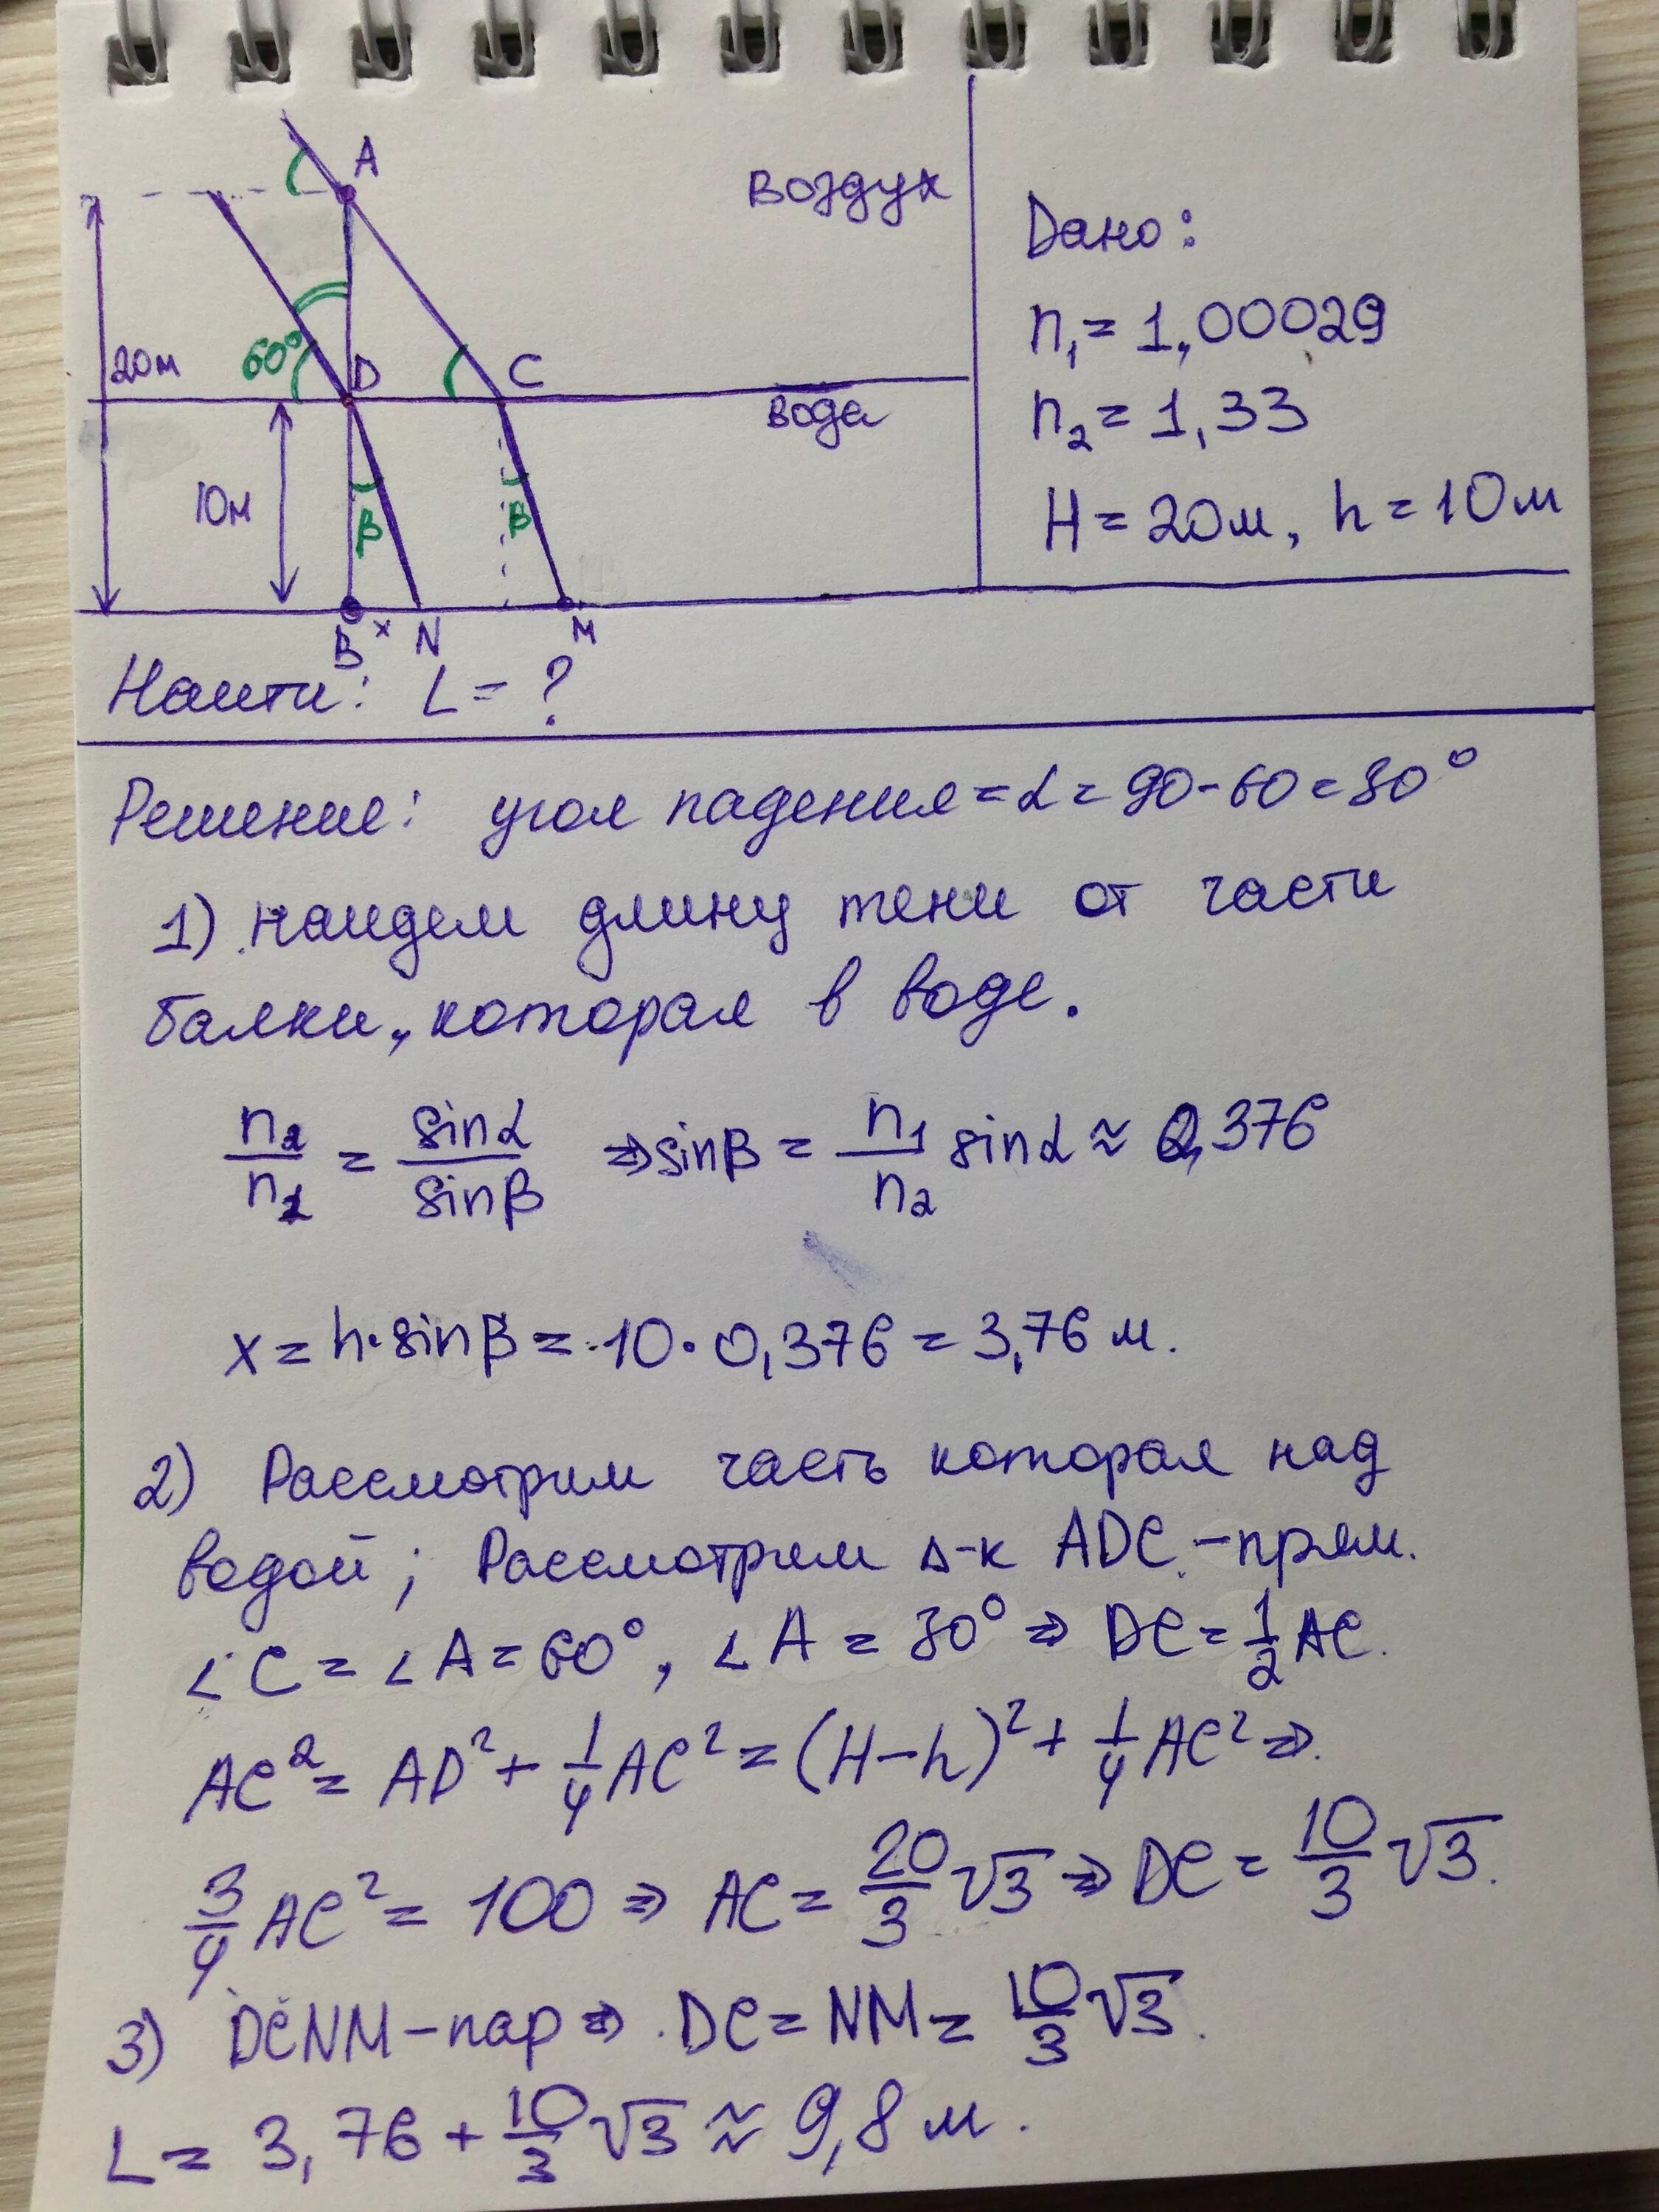 A
воздух
Дано:
n₁ = 1,00029
20м
60°
D
C
вода
n₂ = 1,33
10м
β
β
H = 20м, h = 10м
B x N M
Наити: L = ?
Решение: угол падения = α = 90-60 = 30°
1) наидем длину тени от части
балки, которая в воде.
n₂/n₁ = sinα/sinβ ⇒ sinβ = n₁/n₂ sinα ≈ 0,376
x = h·sinβ = 10·0,376 = 3,76 м.
2) Рассмотрим часть которая над
водой; Рассмотрим Δ-к ADC -прям.
∠C = ∠A = 60°, ∠A = 30° ⇒ DC = 1/2 AC.
AC² = AD² + 1/4 AC² = (H-h)² + 1/4 AC² ⇒
3/4 AC² = 100 ⇒ AC = 20/3 √3 ⇒ DC = 10/3 √3.
3) DCNM-пар ⇒ DC = NM = 10/3 √3.
L = 3,76 + 10/3 √3 ≈ 9,8 м.